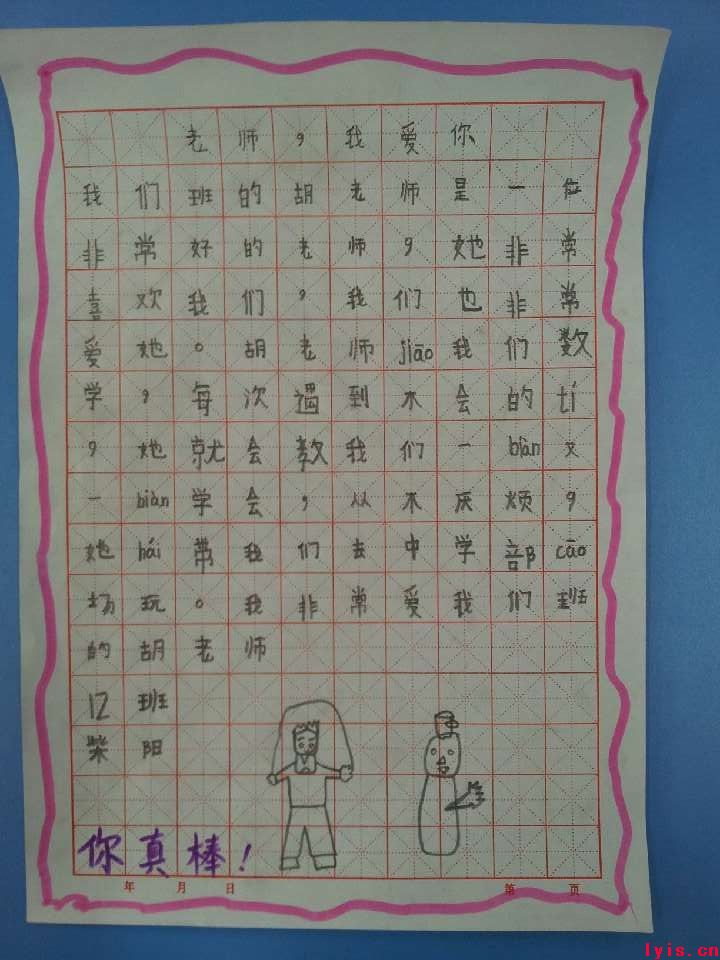 老师，我爱你
我们班的胡老师是一位
非常好的老师，她非常
喜欢我们，我们也非常
爱她。胡老师jiāo我们数
学，每次遇到不会的tí
，她就会教我们一biàn又
一biàn学会，从不厌烦，
她hái带我们去中学部cāo
场玩。我非常爱我们班
的胡老师
12班
柴阳
你真棒！
年 月 日 第 页
lyis.cn